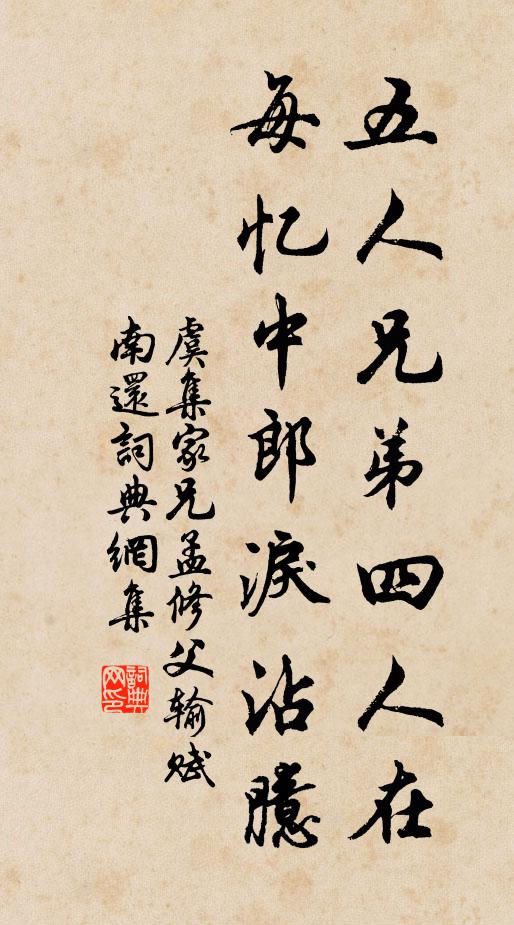 五人兄弟四人在
每忆中郎淚沾臆
虞集家兄孟修父输赋
南還詞典網集
詞典网印